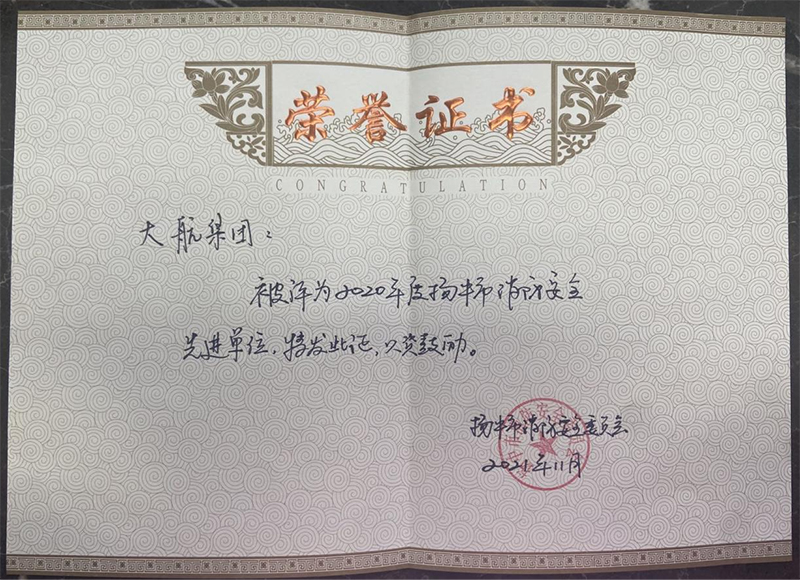 荣誉证书
CONGRATULATION
大航集团：
被评为2020年度扬中市消防安全
先进单位，特发此证，以资鼓励。
扬中市消防安全委员会
2021年11月